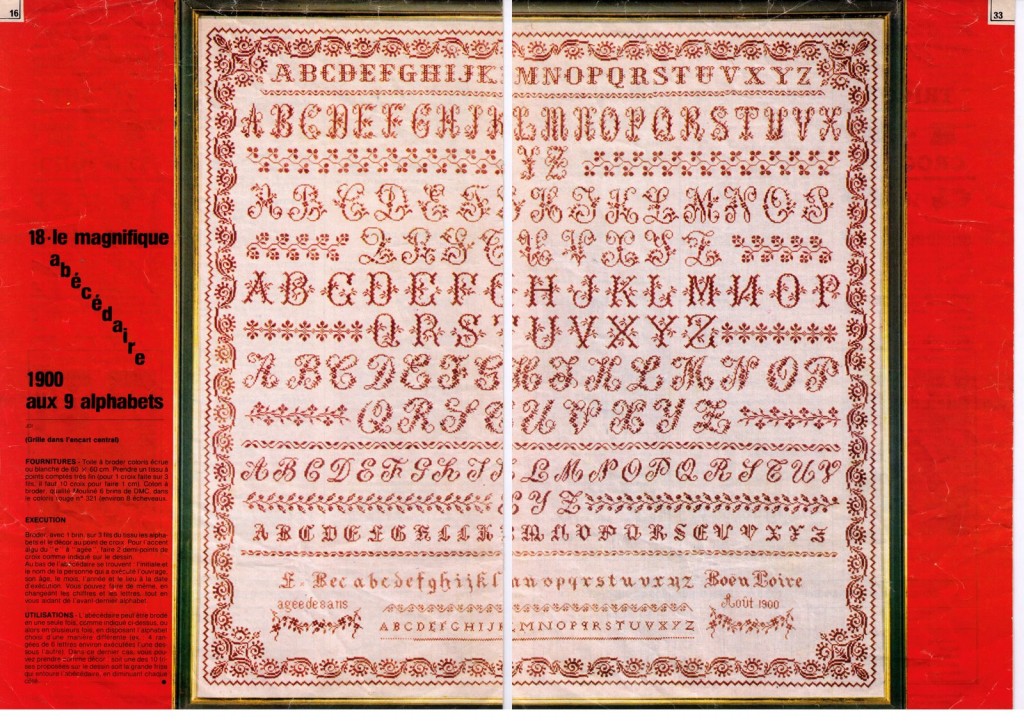 16
33
18·le magnifique
abécédaire
1900
aux 9 alphabets
(Grille dans l'encart central)
FOURNITURES - Toile à broder coloris écrue
ou blanche de 60 × 60 cm. Prendre un tissu à
points comptés très fin (pour 1 croix faite sur 3
fils, il faut 10 croix pour faire 1 cm). Coton à
broder, qualité Mouliné 6 brins de DMC, dans
le coloris rouge n° 321 (environ 8 écheveaux.
EXECUTION
Broder, avec 1 brin, sur 3 fils du tissu les alpha-
bets et le décor au point de croix. Pour l'accent
aigu du "e" à "agée", faire 2 demi-points de
croix comme indiqué sur le dessin.
Au bas de l'abécédaire se trouvent : l'initiale et
le nom de la personne qui a exécuté l'ouvrage,
son âge, le mois, l'année et le lieu à la date
d'exécution. Vous pouvez faire de même, en
changeant les chiffres et les lettres, tout en
vous aidant de l'avant-dernier alphabet.
UTILISATIONS - L'abécédaire peut être brodé
en une seule fois, comme indiqué ci-dessus, ou
alors en plusieurs fois, en disposant l'alphabet
choisi d'une manière différente (ex.: 4 ran-
gées de 6 lettres environ exécutées l'une des-
sous l'autre). Dans ce dernier cas, vous pou-
vez prendre comme décor : soit une des 10 fri-
ses proposées sur le dessin soit la grande frise
qui entoure l'abécédaire, en diminuant chaque
côté.
ABCDEFGHIJK MNOPQRSTUVXYZ
ABCDEFGHIJK LMNOPQRSTUVX
YZ
ABCDEFG HIJKLMNOP
QRST UVXYZ
ABCDEFG HJKLMNOP
QRS TUVXYZ
ABCDEFG HIJKLMNOP
QRST UVXYZ
ABCDEFGHIJ LMNOPQRSTUV
XYZ
ABCDEFGHIJK MNOPQRSTUVXYZ
E. Bec abcdefghijkl mnopqrstuvxyz Boën Loire
agée de 8 ans
Août 1900
ABCDEFGHIJK MNOPQRSTUVXYZ